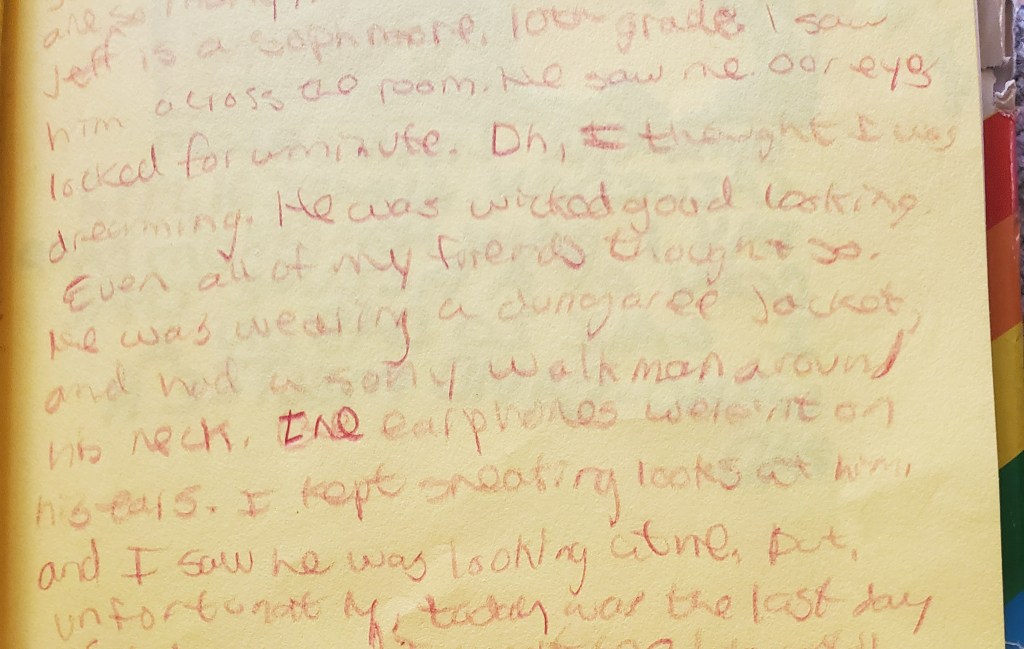 Jeff is a sophmore, 10th grade. I saw
him across the room. He saw me. Our eyes
locked for a minute. Oh, I thought I was
dreaming. He was wicked good looking.
Even all of my friends thought so.
He was wearing a dungaree jacket,
and had a sony walkman around
his neck. The earphones weren't on
his ears. I kept sneaking looks at him,
and I saw he was looking at me. But,
unfortunatly, today was the last day